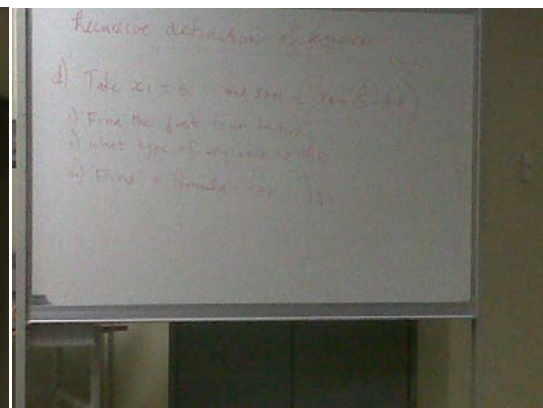 Recursive definition of sequences
d) Take x1 = 3 and
i) Find the first four terms
ii) what type of sequence is this
iii) Find a formula for